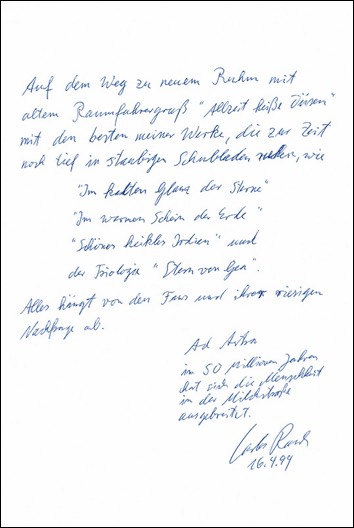 Auf dem Weg zu neuem Ruhm mit
altem Raumfahrergruß "Allzeit heiße Düsen"
mit den besten meiner Werke, die zur Zeit
noch tief in staubigen Schubladen ruhen, wie
"Im kalten Glanz der Sterne"
"Im warmen Schein der Erde"
"Schönes heikles Irdien" und
der Triologie "Stern von Gea".
Alles hängt von den Fans und ihrer riesigen
Nachfrage ab.
Ad Astra
in 50 Millionen Jahren
hat sich die Menschheit
in der Milchstraße
ausgebreitet.
Carlos Rasch
16.4.94